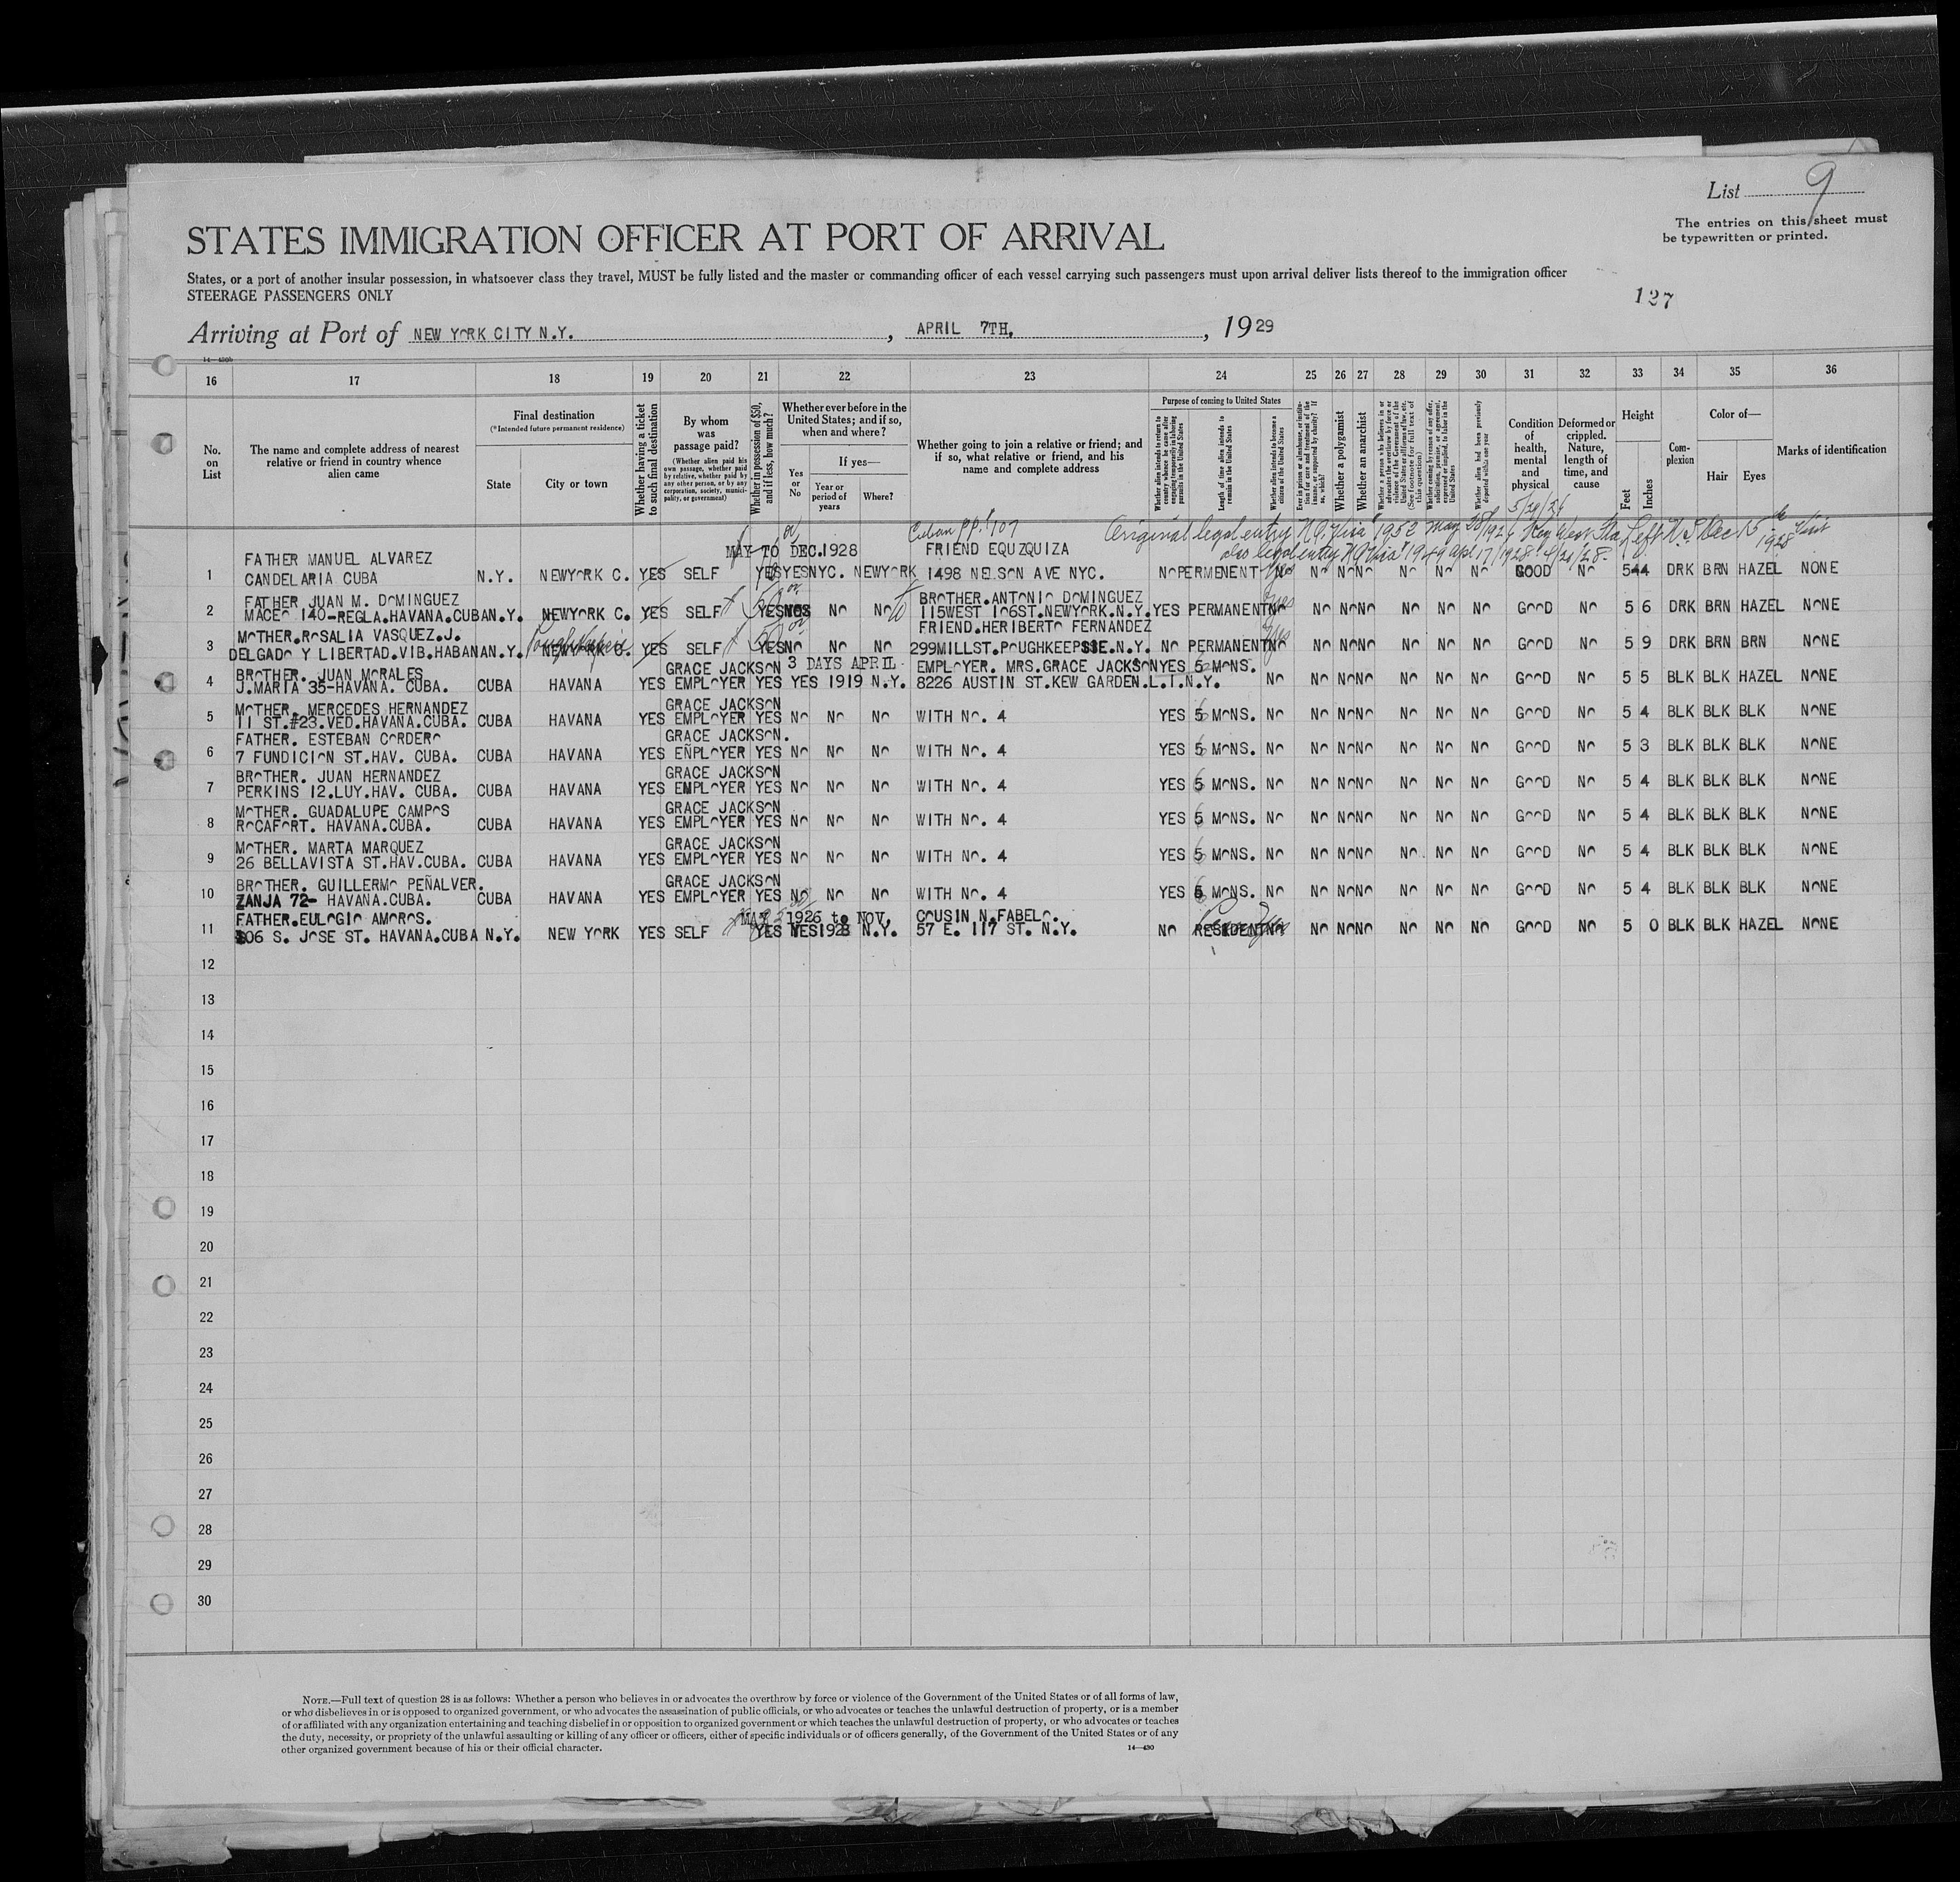 List 9
The entries on this sheet must
be typewritten or printed.
STATES IMMIGRATION OFFICER AT PORT OF ARRIVAL
States, or a port of another insular possession, in whatsoever class they travel, MUST be fully listed and the master or commanding officer of each vessel carrying such passengers must upon arrival deliver lists thereof to the immigration officer
STEERAGE PASSENGERS ONLY
127
Arriving at Port of NEW YORK CITY N.Y. , APRIL 7TH, , 1929
14—430b
16 17 18 19 20 21 22 23 24 25 26 27 28 29 30 31 32 33 34 35 36
No. on List
The name and complete address of nearest relative or friend in country whence alien came
Final destination
(*Intended future permanent residence)
State
City or town
Whether having a ticket to such final destination
By whom was passage paid?
(Whether alien paid his own passage, whether paid by relative, whether paid by any other person, or by any corporation, society, municipality, or government)
Whether in possession of $50, and if less, how much?
Whether ever before in the United States; and if so, when and where?
Yes or No
If yes—
Year or period of years
Where?
Whether going to join a relative or friend; and if so, what relative or friend, and his name and complete address
Purpose of coming to United States
Whether alien intends to return to country whence he came after engaging temporarily in laboring pursuits in the United States
Length of time alien intends to remain in the United States
Whether alien intends to become a citizen of the United States
Ever in prison or almshouse, or institution for care and treatment of the insane, or supported by charity? If so, which?
Whether a polygamist
Whether an anarchist
Whether a person who believes in or advocates the overthrow by force or violence of the Government of the United States or all forms of law, etc. (See footnote for full text of this question)
Whether coming by reason of any offer, solicitation, promise, or agreement, expressed or implied, to labor in the United States
Whether alien had been previously deported within one year
Condition of health, mental and physical
Deformed or crippled. Nature, length of time, and cause
Height
Feet
Inches
Complexion
Color of—
Hair
Eyes
Marks of identification
5/28/24
Cuban pp. 1707 Original legal entry 1952 May 28/1924 Key West Fla Left U.S. Dec 15th 1928 Visit
also legal entry 1949 apl 17/1928. 4/21/28.
MAY TO DEC.1928
1 FATHER MANUEL ALVAREZ
CANDELARIA CUBA N.Y. NEWYORK C. YES SELF YES YES NYC. NEWYORK FRIEND EQUZQUIZA
1498 NELSON AVE NYC. NO PERMENENT NO yes NO NO NO NO NO NO GOOD NO 5 44 DRK BRN HAZEL NONE
2 FATHER JUAN M. DOMINGUEZ
MACEO 140-REGLA.HAVANA.CUBA N.Y. NEWYORK C. YES SELF 50 YES NO NO NO BROTHER.ANTONIO DOMINGUEZ
115WEST 106ST.NEWYORK.N.Y. YES PERMANENT NO yes NO NO NO NO NO NO GOOD NO 5 6 DRK BRN HAZEL NONE
3 MOTHER.ROSALIA VASQUEZ.J.
DELGADO Y LIBERTAD.VIB.HABANA N.Y. NEWYORK C. Poughkeepsie YES SELF 50 YES NO NO NO FRIEND.HERIBERTO FERNANDEZ
299MILLST.POUGHKEEPSSE.N.Y. NO PERMANENT NO yes NO NO NO NO NO NO GOOD NO 5 9 DRK BRN BRN NONE
4 BROTHER. JUAN MORALES
J.MARIA 35-HAVANA. CUBA. CUBA HAVANA YES GRACE JACKSON EMPLOYER YES YES 3 DAYS APRIL 1919 N.Y. EMPLOYER. MRS.GRACE JACKSON
8226 AUSTIN ST.KEW GARDEN.L.I.N.Y. YES 6 MONS. NO NO NO NO NO NO NO GOOD NO 5 5 BLK BLK HAZEL NONE
5 MOTHER. MERCEDES HERNANDEZ
11 ST.#23.VED.HAVANA.CUBA. CUBA HAVANA YES GRACE JACKSON EMPLOYER YES NO NO NO WITH NO. 4 YES 6 MONS. NO NO NO NO NO NO NO GOOD NO 5 4 BLK BLK BLK NONE
6 FATHER. ESTEBAN CORDERO
7 FUNDICION ST.HAV. CUBA. CUBA HAVANA YES GRACE JACKSON. EMPLOYER YES NO NO NO WITH NO. 4 YES 6 MONS. NO NO NO NO NO NO NO GOOD NO 5 3 BLK BLK BLK NONE
7 BROTHER. JUAN HERNANDEZ
PERKINS 12.LUY.HAV. CUBA. CUBA HAVANA YES GRACE JACKSON EMPLOYER YES NO NO NO WITH NO. 4 YES 6 MONS. NO NO NO NO NO NO NO GOOD NO 5 4 BLK BLK BLK NONE
8 MOTHER. GUADALUPE CAMPOS
ROCAFORT. HAVANA.CUBA. CUBA HAVANA YES GRACE JACKSON EMPLOYER YES NO NO NO WITH NO. 4 YES 6 MONS. NO NO NO NO NO NO NO GOOD NO 5 4 BLK BLK BLK NONE
9 MOTHER. MARTA MARQUEZ
26 BELLAVISTA ST.HAV.CUBA. CUBA HAVANA YES GRACE JACKSON EMPLOYER YES NO NO NO WITH NO. 4 YES 6 MONS. NO NO NO NO NO NO NO GOOD NO 5 4 BLK BLK BLK NONE
10 BROTHER. GUILLERMO PEÑALVER.
ZANJA 72- HAVANA.CUBA. CUBA HAVANA YES GRACE JACKSON EMPLOYER YES NO NO NO WITH NO. 4 YES 6 MONS. NO NO NO NO NO NO NO GOOD NO 5 4 BLK BLK BLK NONE
11 FATHER.EULOGIO AMOROS.
106 S. JOSE ST. HAVANA.CUBA N.Y. NEW YORK YES SELF YES YES MAY 1926 to NOV. 1928 N.Y. COUSIN N.FABELO.
57 E. 117 ST. N.Y. NO RESIDENT NO yes NO NO NO NO NO NO GOOD NO 5 0 BLK BLK HAZEL NONE
12
13
14
15
16
17
18
19
20
21
22
23
24
25
26
27
28
29
30
NOTE.—Full text of question 28 is as follows: Whether a person who believes in or advocates the overthrow by force or violence of the Government of the United States or of all forms of law,
or who disbelieves in or is opposed to organized government, or who advocates the assassination of public officials, or who advocates or teaches the unlawful destruction of property, or is a member
of or affiliated with any organization entertaining and teaching disbelief in or opposition to organized government or which teaches the unlawful destruction of property, or who advocates or teaches
the duty, necessity, or propriety of the unlawful assaulting or killing of any officer or officers, either of specific individuals or of officers generally, of the Government of the United States or of any
other organized government because of his or their official character.
14—430